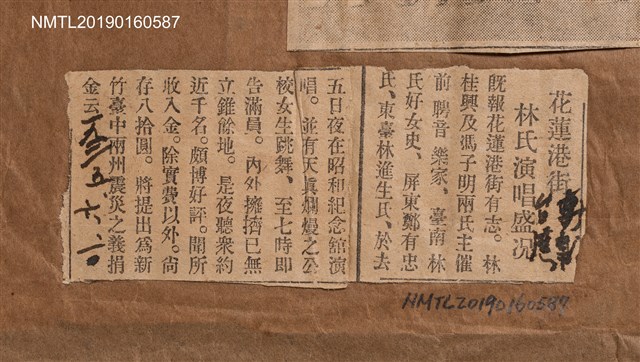 NMTL20190160587
花蓮港街
林氏演唱盛况
既報花蓮港街有志。林
桂興及馮子明兩氏主催
前聘音樂家、臺南林
氏好女史、屏東鄭有忠
氏、東臺林進生氏、於去
五日夜在昭和紀念舘演
唱。並有天眞爛熳之公
校女生跳舞、至七時即
告滿員。內外擁擠已無
立錐餘地。是夜聽衆約
近千名。頗博好評。聞所
收入金。除實費以外。尙
存八拾圓。將提出爲新
竹臺中兩州震災之義捐
金云
NMTL20190160587